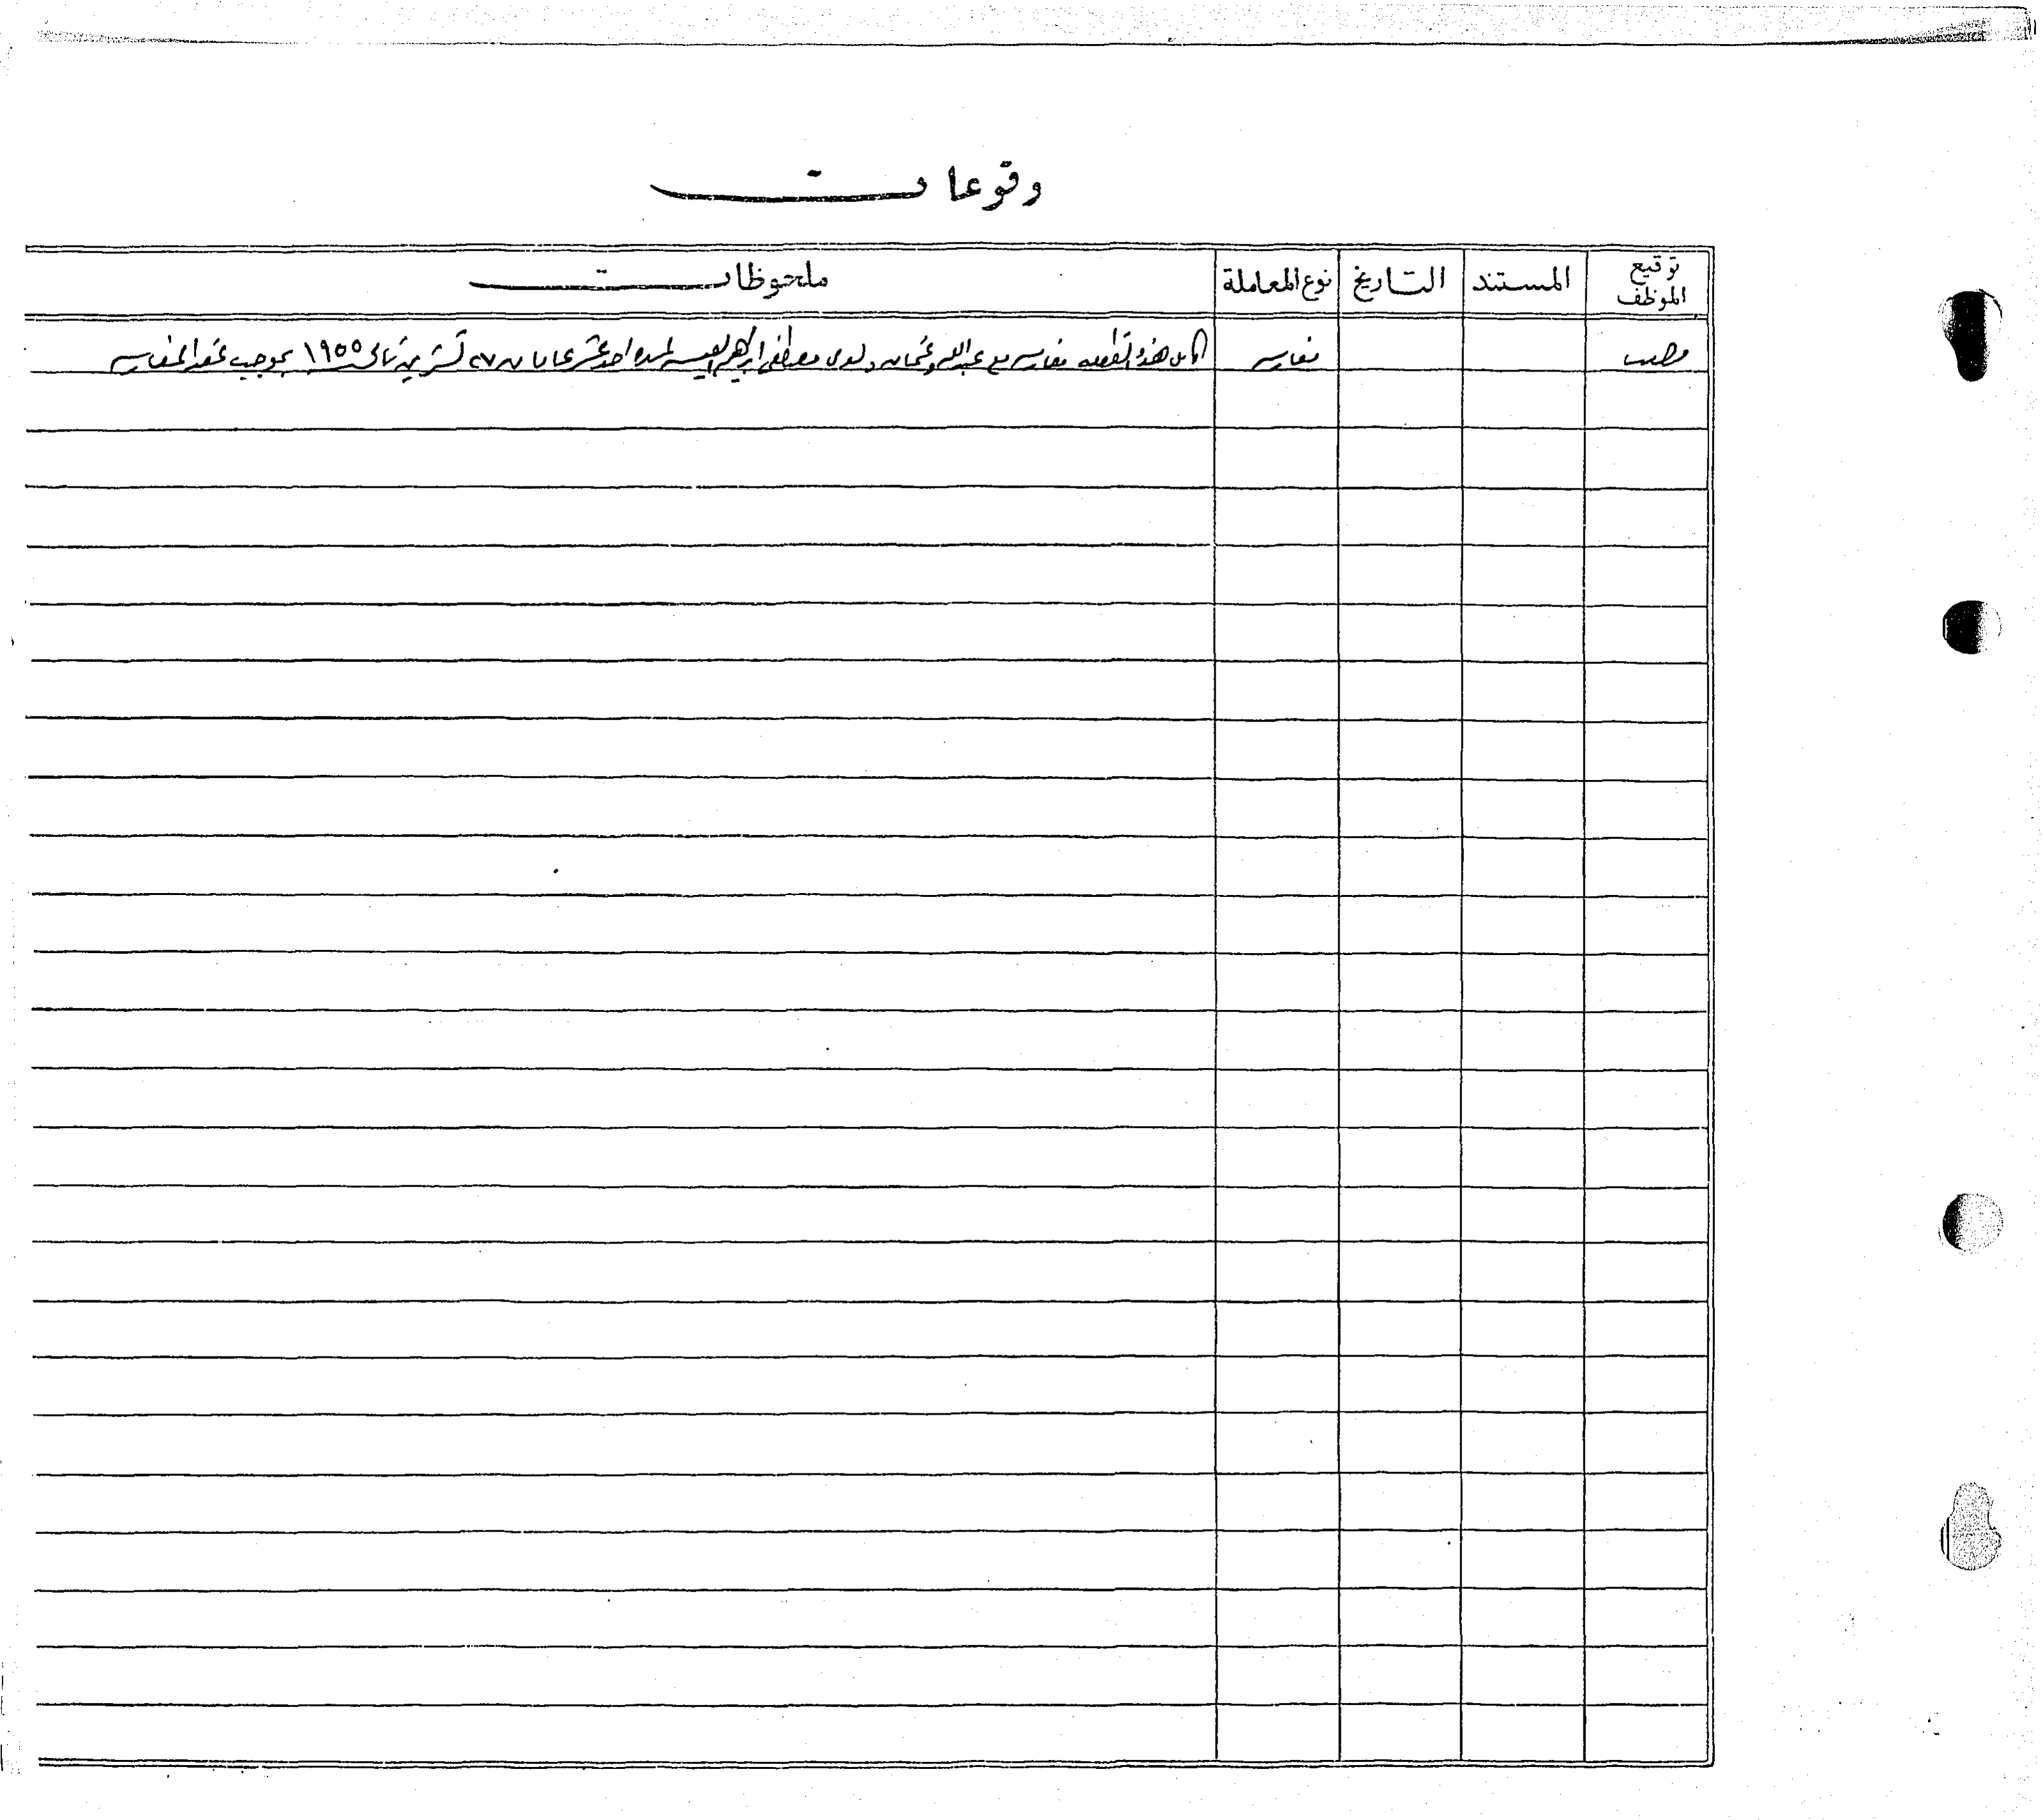 وقوعات
توقيع الموظف المستند التاريخ نوع المعاملة ملحوظات
مغارسه كامل هذه القطعه مغارسه مع عبدالله وعثمان ولدى مصطفى ابراهيم لمده احد عشر عاما من ٢٧ تشرين ثانى ١٩٥٥ بموجب عقد المغارسه